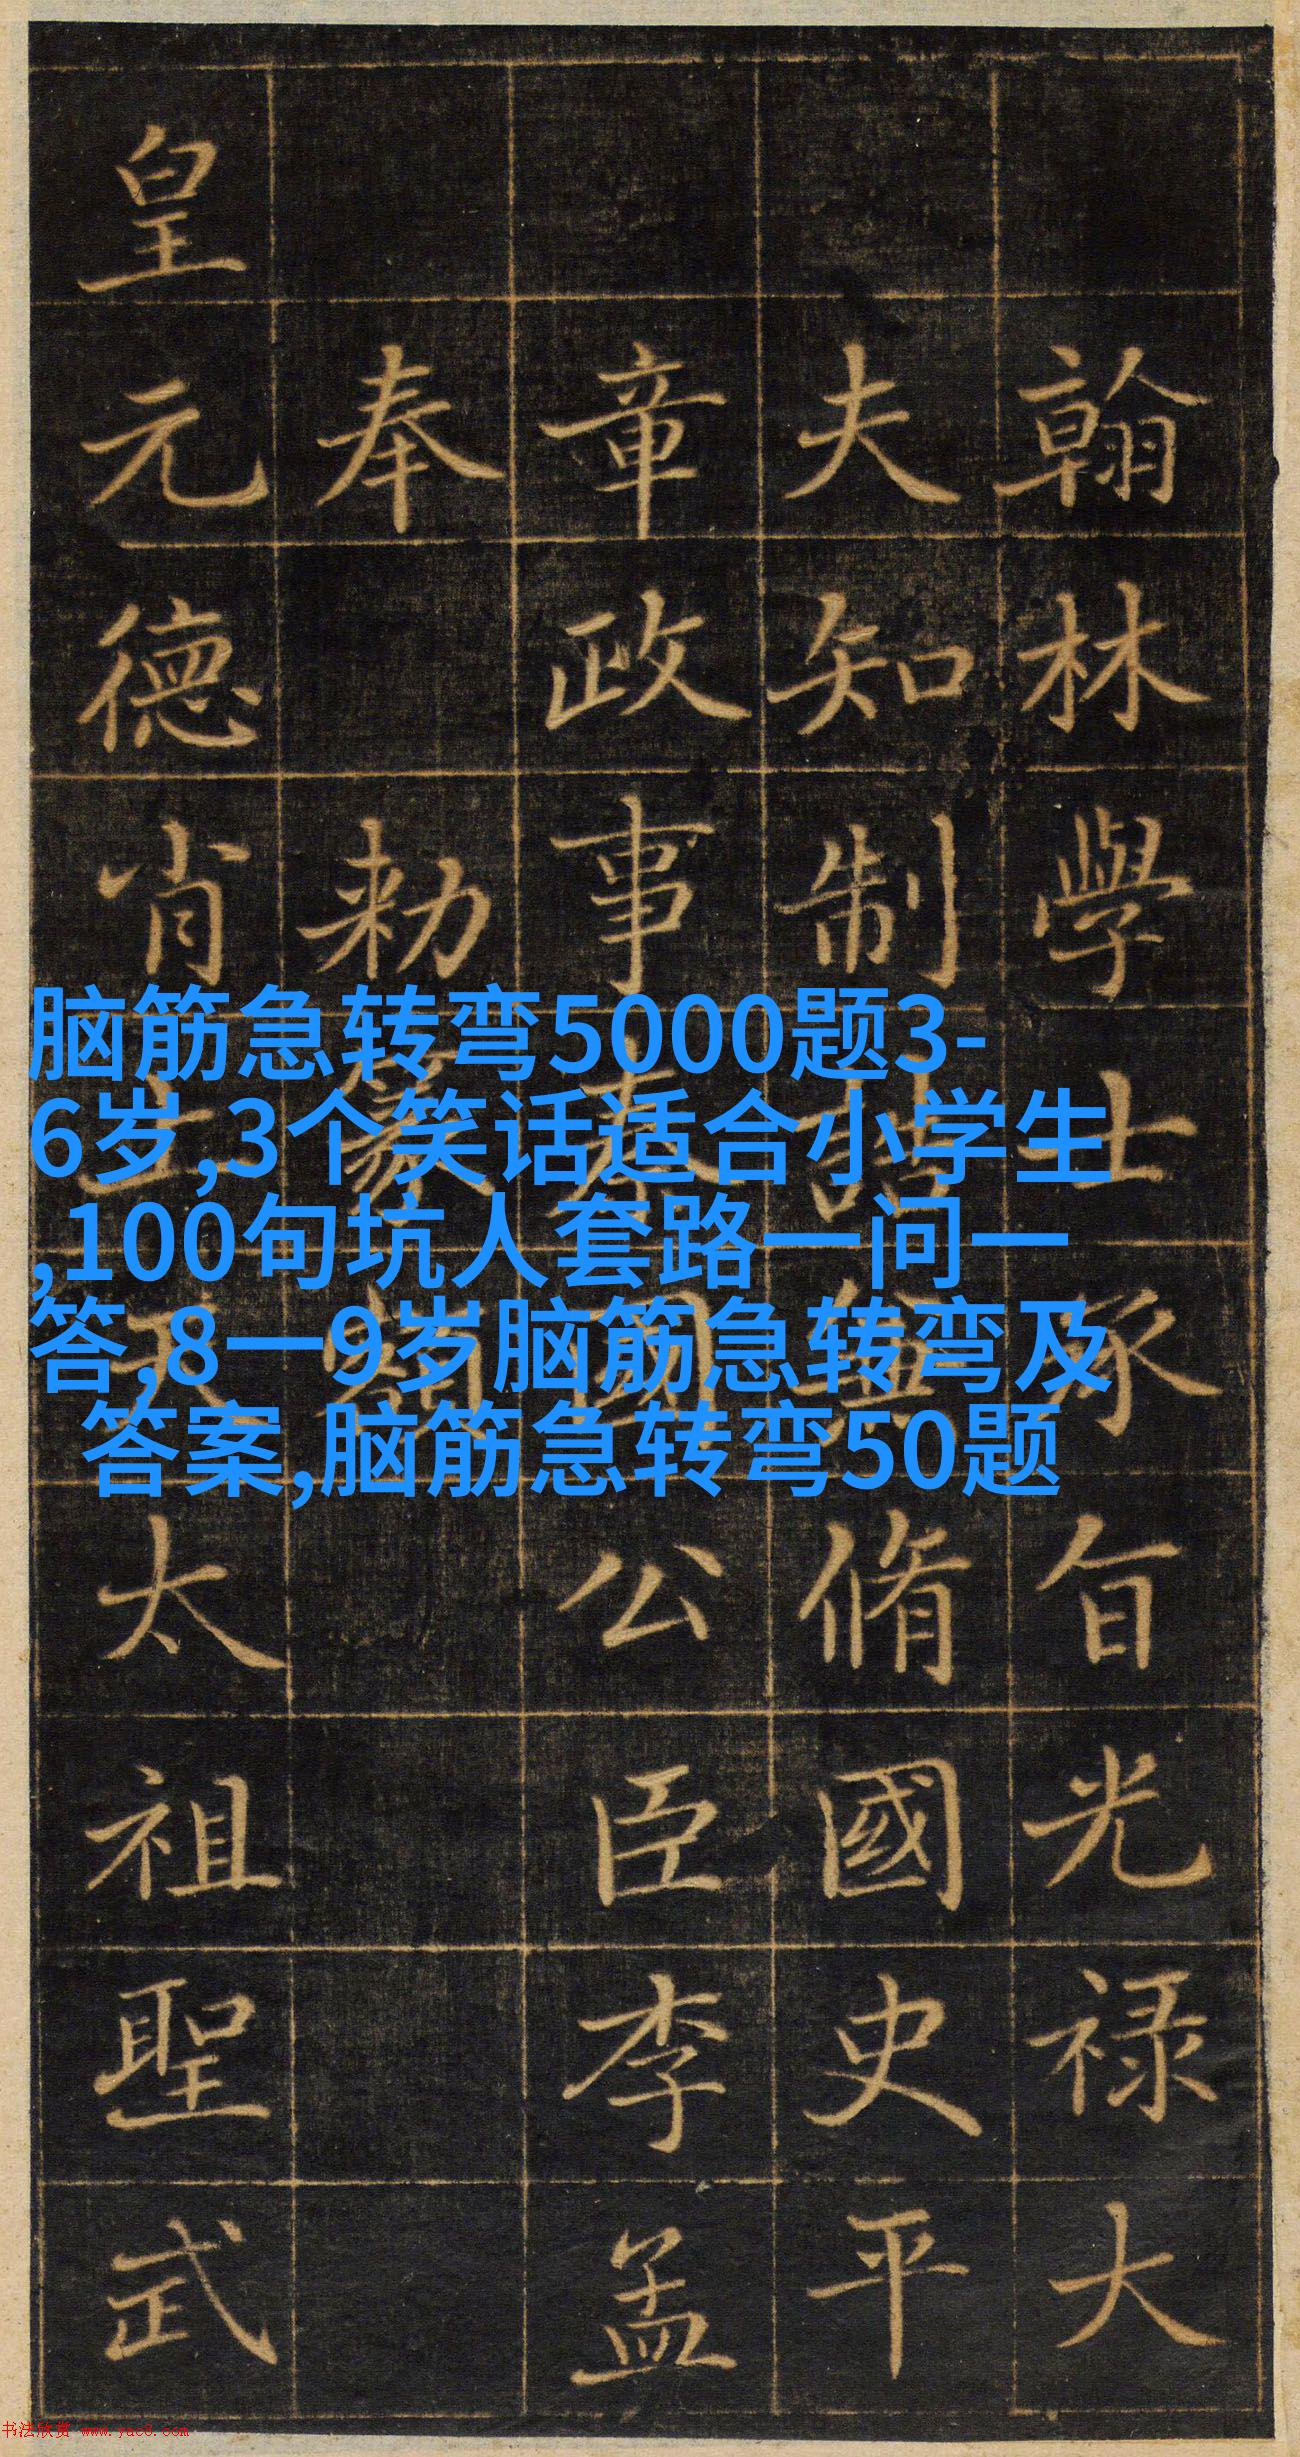 翰林學士承旨光禄大
夫知制誥兼脩國史平
章政事秦國公臣李孟
奉勅篆額
皇元德肖太祖聖武
脑筋急转弯5000题3-
6岁,3个笑话适合小学生
,100句坑人套路一问一
答,8一9岁脑筋急转弯及
答案,脑筋急转弯50题
书法欣赏 www.yac8.com